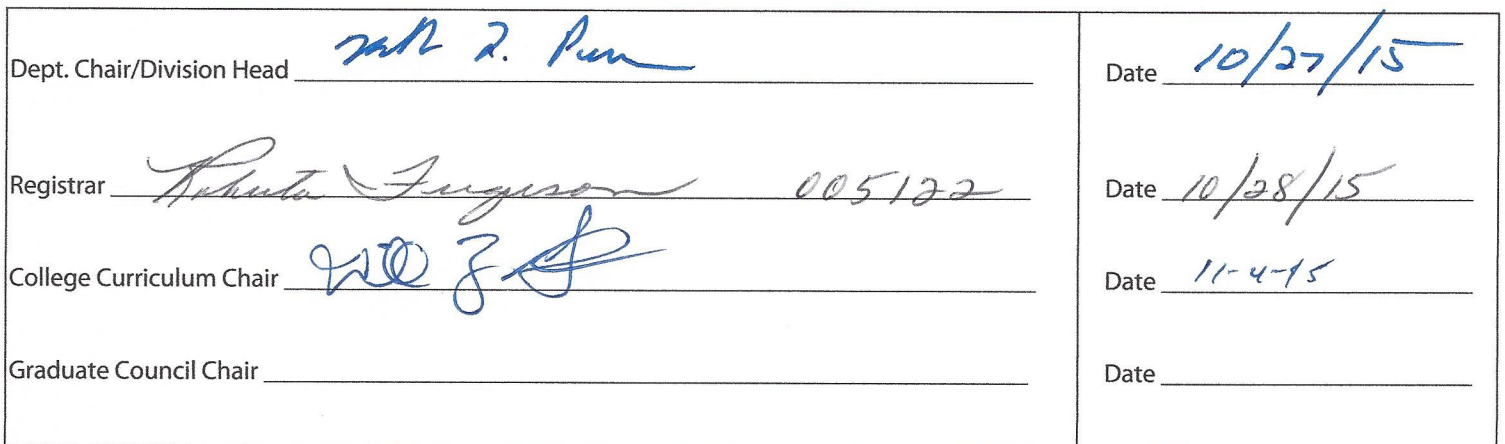 Dept. Chair/Division Head Date 10/27/15
Registrar Roberta Ferguson 005122 Date 10/28/15
College Curriculum Chair Date 11-4-15
Graduate Council Chair Date